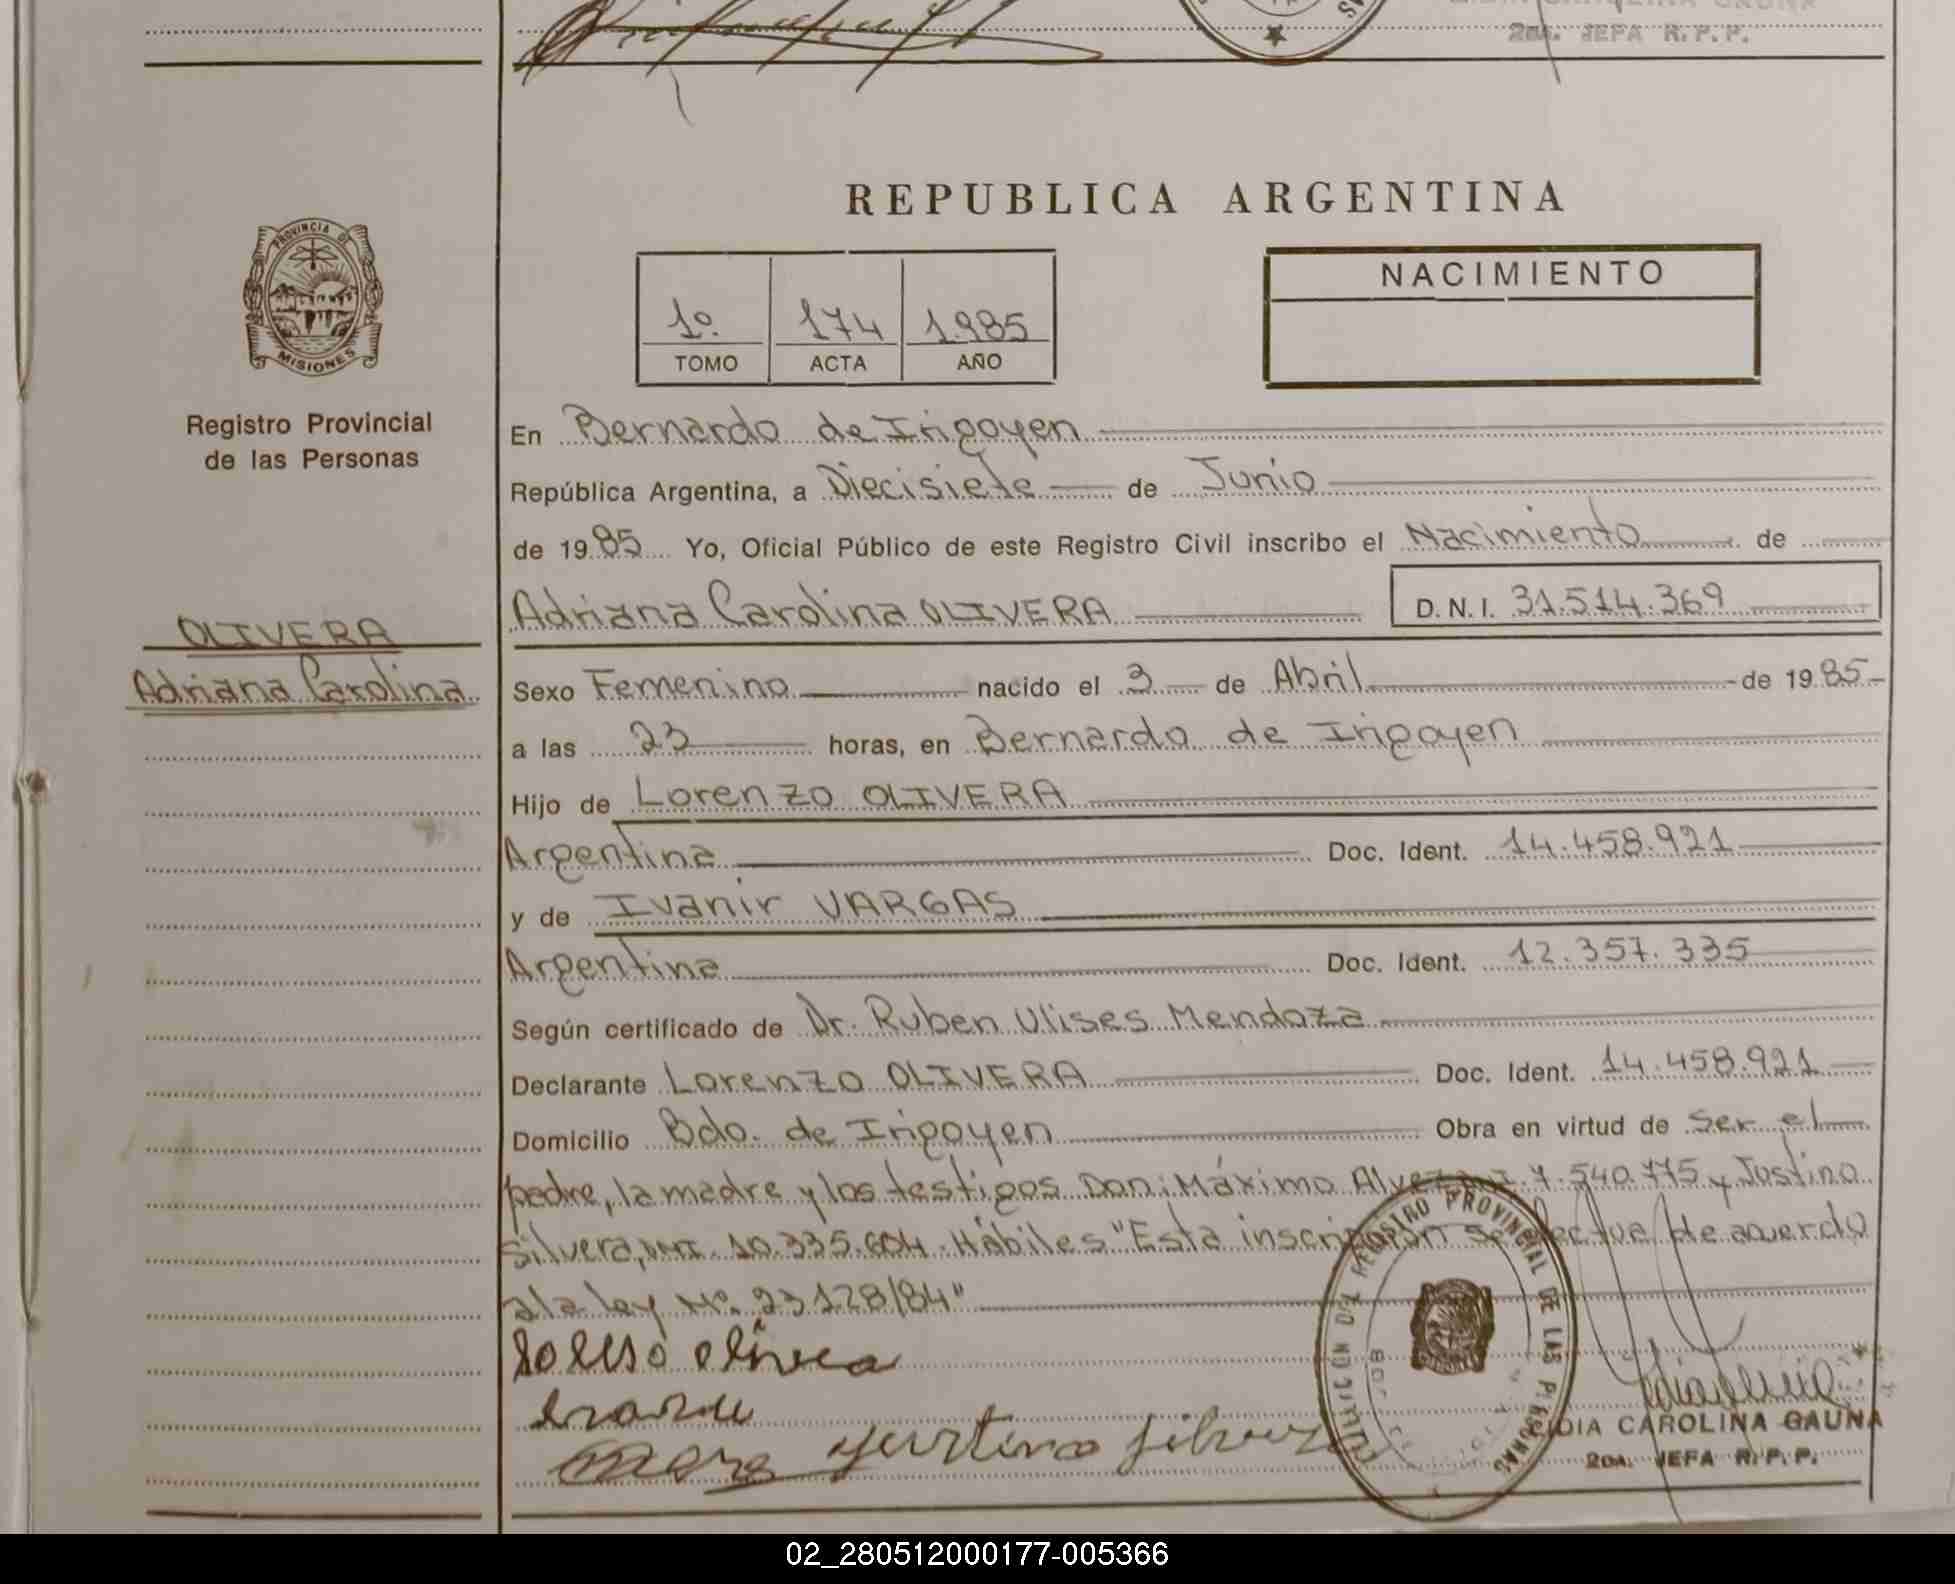 2DA. JEFA R.P.P.
REPUBLICA ARGENTINA
PROVINCIA DE
MISIONES
Registro Provincial
de las Personas
1º. 174 1.985
TOMO ACTA AÑO
NACIMIENTO
En Bernardo de Irigoyen
República Argentina, a Diecisiete de Junio
de 19 85 Yo, Oficial Público de este Registro Civil inscribo el Nacimiento de
Adriana Carolina OLIVERA D.N.I. 31.514.369
OLIVERA
Adriana Carolina
Sexo Femenino nacido el 3 de Abril de 19 85
a las 23 horas, en Bernardo de Irigoyen
Hijo de Lorenzo OLIVERA
Argentina Doc. Ident. 14.458.921
y de Ivanir VARGAS
Argentina Doc. Ident. 12.357.335
Según certificado de Dr. Ruben Ulises Mendoza
Declarante Lorenzo OLIVERA Doc. Ident. 14.458.921
Domicilio Bdo. de Irigoyen Obra en virtud de ser el
padre, la madre y los testigos Don: Máximo Alvez 7.540.775 y Justino
Silvera, DNI. 10.335.604. Hábiles "Esta inscripción se efectua de acuerdo
a la ley Nº. 23128/84"
REGISTRO PROVINCIAL DE LAS PERSONAS
Justino Silvera
LIDIA CAROLINA GAUNA
2DA. JEFA R.P.P.
02_280512000177-005366